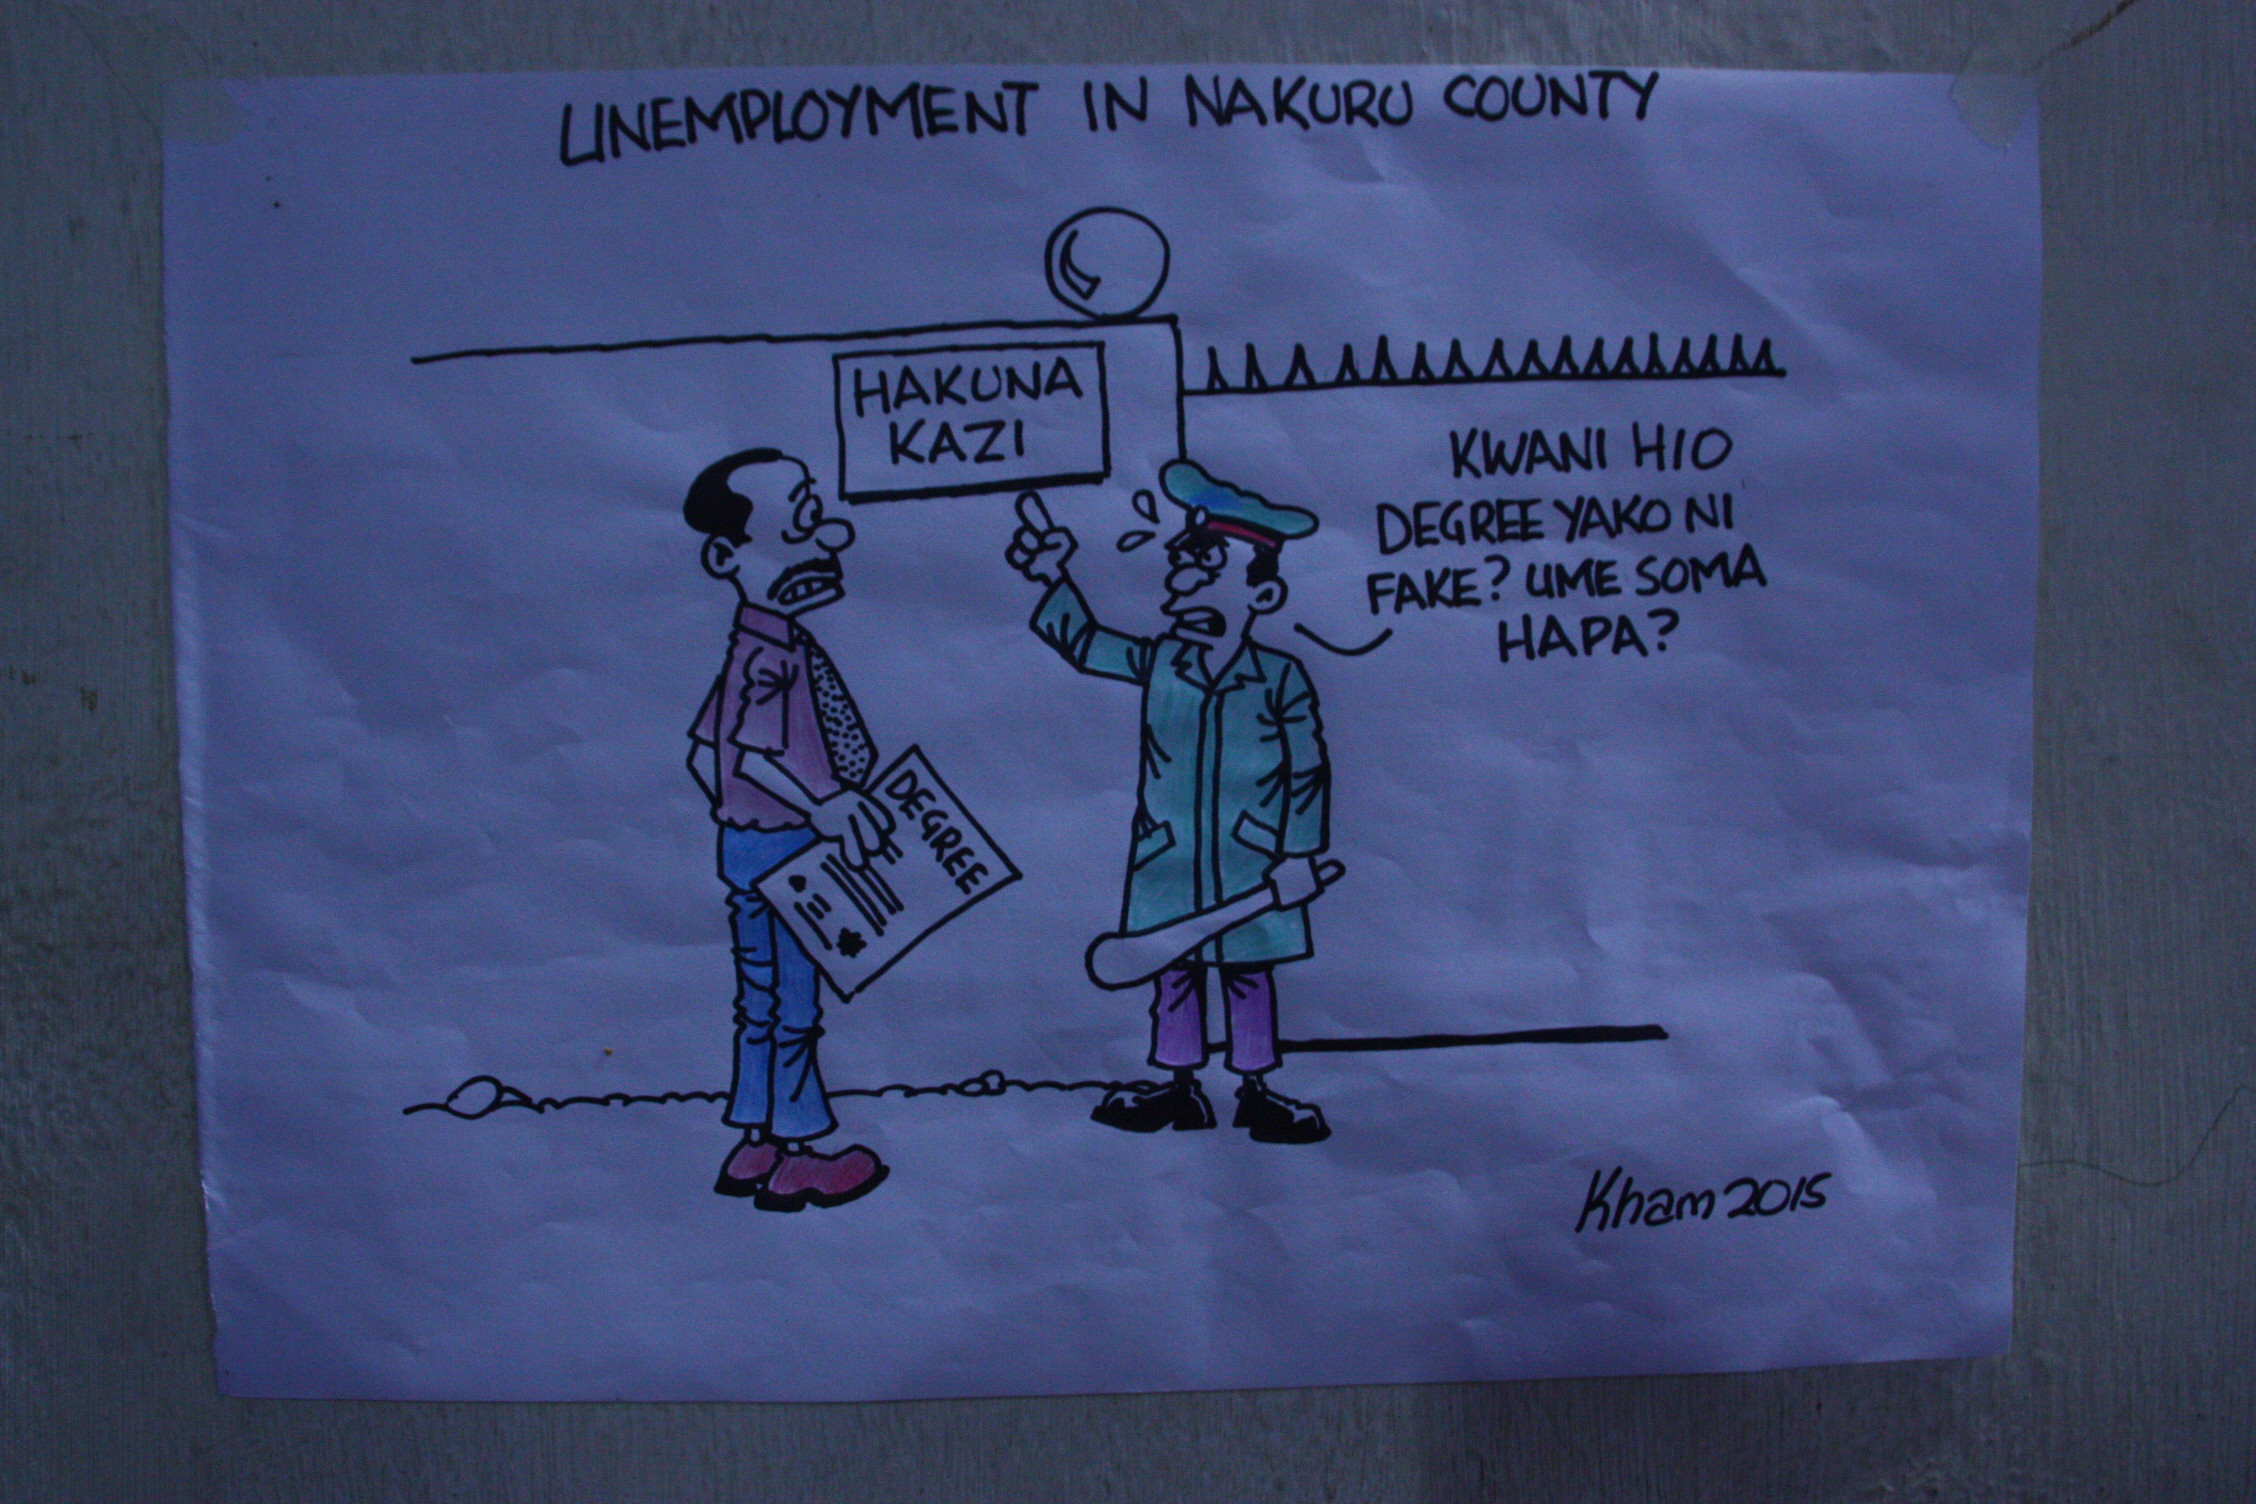 UNEMPLOYMENT IN NAKURU COUNTY
HAKUNA
KAZI
KWANI HIO
DEGREE YAKO NI
FAKE? UME SOMA
HAPA?
DEGREE
Kham 2015